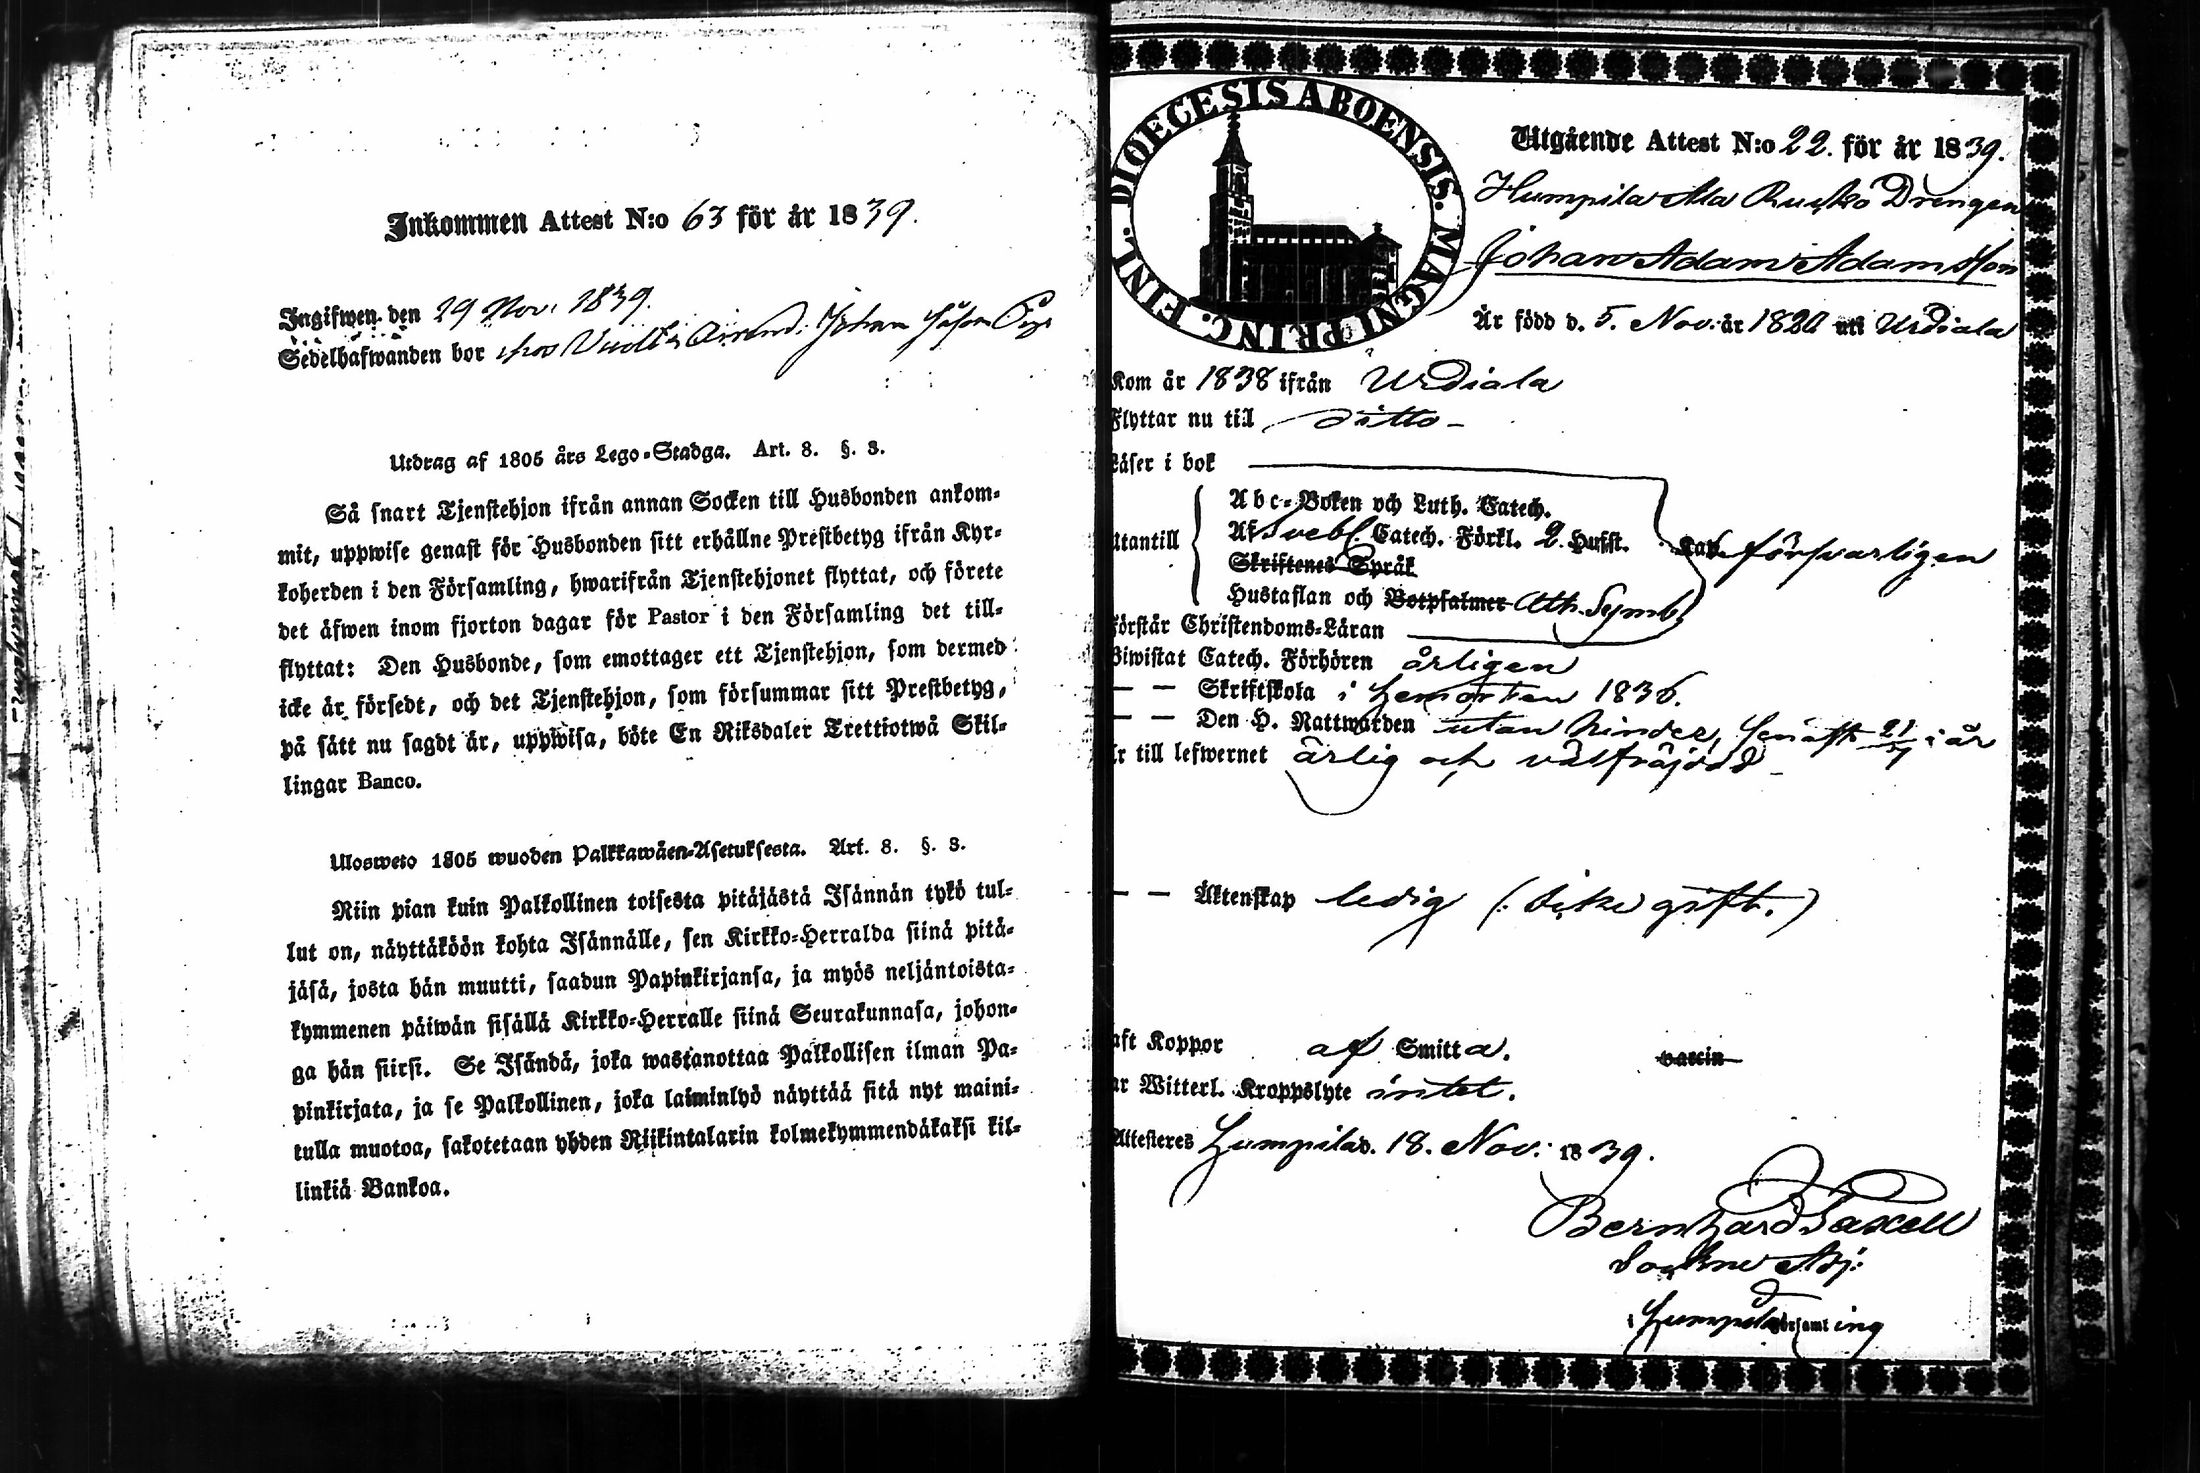 Inkommen Attest N:o 63 för år 1839.
Ingifwen den 29 Nov. 1839.
Sedelhafwanden bor hos
Utdrag af 1805 års Lego-Stadga. Art. 8. §. 3.
Så snart Tjenstehjon ifrån annan Socken till Husbonden ankom-
mit, uppwise genast för Husbonden sitt erhållne Prestbetyg ifrån Kyr-
koherden i den Församling, hwarifrån Tjenstehjonet flyttat, och förete
det äfwen inom fjorton dagar för Pastor i den Församling det till-
flyttat: Den Husbonde, som emottager ett Tjenstehjon, som dermed
icke är försedt, och det Tjenstehjon, som försummar sitt Prestbetyg,
på sätt nu sagdt är, uppwisa, böte En Riksdaler Trettiotwå Skil-
lingar Banco.
Ulosweto 1805 wuoden Palkkawäen-Asetuksesta. Art. 8. §. 3.
Niin pian kuin Palkollinen toisesta pitäjästä Isännän tykö tul-
lut on, näyttäköön kohta Isännälle, sen Kirkko-Herralda siinä pitä-
jäsä, josta hän muutti, saadun Papinkirjansa, ja myös neljäntoista-
kymmenen päiwän sisällä Kirkko-Herralle siinä Seurakunnasa, johon-
ga hän siirsi. Se Isändä, joka wastanottaa Palkollisen ilman Pa-
pinkirjata, ja se Palkollinen, joka laiminlyö näyttää sitä nyt maini-
tulla muotoa, sakotetaan yhden Riikintalarin kolmekymmendäkaksi kil-
linkiä Bankoa.
DIOECESIS ABOENSIS. MAGNI PRINC. FINL.
Utgående Attest N:o 22. för år 1839.
Humpila Ala Ruisko Drengen
Johan Adam Adamsson
Är född d. 5. Nov. år 1820 uti Urdiala
Kom år 1838 ifrån Urdiala
Flyttar nu till ditto
Läser i bok
Abc-Boken och Luth. Catech.
Utantill Af Svebl. Catech. Förkl. 2. Hufst. förswarligen
Skriftenes Språk
Hustaflan och Botpsalmer Ath. Symb.
Förstår Christendoms-Läran
Biwistat Catech. Förhören årligen
— — Skriftskola i hemorten 1836.
— — Den H. Nattwarden utan hinder, senast 21/7 i år
Är till lefwernet ärlig och välfräjdad
— — Äktenskap ledig (: icke gift.)
Haft Koppor af Smitta. vaccin
Har Witterl. Kroppslyte intet.
Attesteres Humpila d. 18. Nov. 1839.
Bernhard Taxell
Sockne Adj:
i Humpila Församling